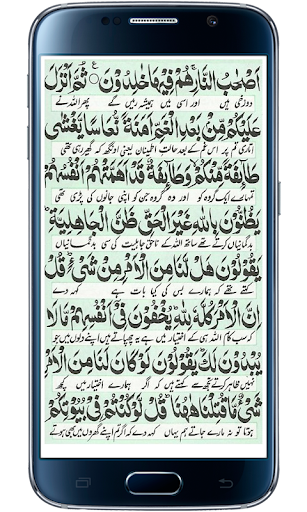 اَصْحٰبُ النَّارِ هُمْ فِیْهَا خٰلِدُوْنَ ثُمَّ اَنْزَلَ
دوزخی ہیں اور اسی میں ہمیشہ رہیں گے پھر اللہ نے
عَلَیْكُمْ مِّنْۢ بَعْدِ الْغَمِّ اَمَنَةً نُّعَاسًا یَّغْشٰی
اتاری تم پر اس غم کے بعد حالت اطمینان یعنی اونگھ کہ گھیر رہی تھی
طَآئِفَةً مِّنْكُمْ وَطَآئِفَةٌ قَدْ اَهَمَّتْهُمْ اَنْفُسُهُمْ
تمہارے ایک گروہ کو اور وہ گروہ جن کو اپنی جانوں کی پڑی تھی
یَظُنُّوْنَ بِاللّٰهِ غَیْرَ الْحَقِّ ظَنَّ الْجَاهِلِیَّةِ
بدگمانیاں کرتے تھے ساتھ اللہ کے ناحق جاہلیت کی سی بدگمانیاں
یَقُوْلُوْنَ هَلْ لَّنَا مِنَ الْاَمْرِ مِنْ شَیْءٍ قُلْ
کہتے تھے کہ ہمارے بس کی کیا بات ہے کہہ دے
اِنَّ الْاَمْرَ كُلَّهٗ لِلّٰهِ یُخْفُوْنَ فِیْۤ اَنْفُسِهِمْ مَّا لَا
کہ سب کام اللہ ہی کے اختیار میں ہے یہ چھپاتے ہیں اپنے دلوں میں جو
یُبْدُوْنَ لَكَ یَقُوْلُوْنَ لَوْ كَانَ لَنَا مِنَ الْاَمْرِ
نہیں ظاہر کرتے تجھ سے کہتے ہیں کہ اگر ہمارے اختیار میں کچھ
شَیْءٌ مَّا قُتِلْنَا هٰهُنَا قُلْ لَّوْ كُنْتُمْ فِیْ بُیُوْتِكُمْ
ہوتا تو نہ مارے جاتے ہم یہاں کہہ دے کہ اگر تم اپنے گھروں میں بھی ہوتے